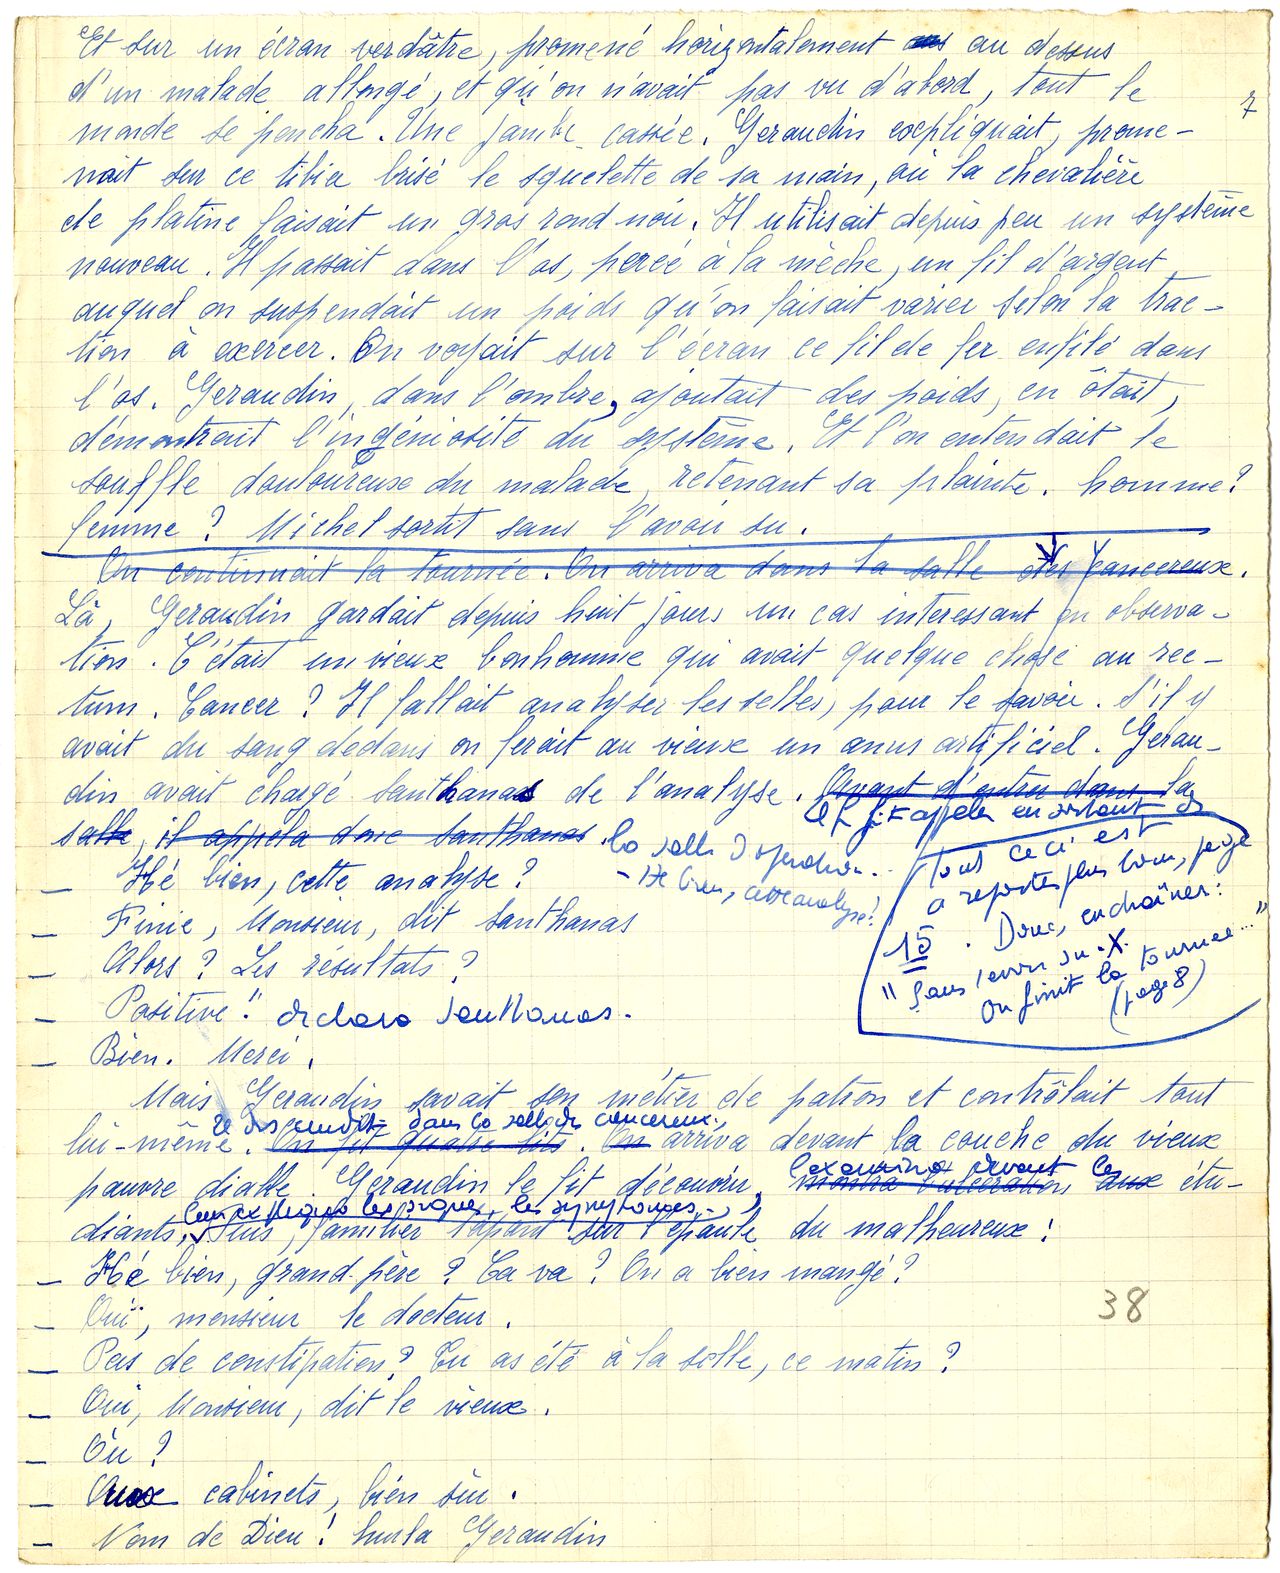 Et sur un écran verdâtre, promené horizontalement au dessus
d'un malade allongé, et qu'on n'avait pas vu d'abord, tout le
7
monde se pencha. Une jambe cassée. Geraudin expliquait, prome-
nait sur ce tibia brisé le squelette de sa main, où la chevalière
de platine faisait un gros rond noir. Il utilisait depuis peu un système
nouveau. Il passait dans l'os, percé à la mèche, un fil d'argent
auquel on suspendait un poids qu'on faisait varier selon la trac-
tion à exercer. On voyait sur l'écran ce fil de fer enfilé dans
l'os. Geraudin, dans l'ombre, ajoutait des poids, en ôtait,
démontrait l'ingéniosité du système. Et l'on entendait le
souffle douloureuse du malade, retenant sa plainte. homme?
femme? Michel sortit sans l'avoir su.
On continuait la tournée. On arriva dans la salle des cancereux.
Là, Geraudin gardait depuis huit jours un cas interessant en observa-
tion. C'était un vieux bonhomme qui avait quelque chose au rec-
tum. Cancer? Il fallait analyser les selles, pour le savoir. S'il y
avait du sang dedans on ferait au vieux un anus artificiel. Gerau-
din avait chargé Santhanas de l'analyse. Avant d'entrer dans la
Il fit appeler en sortant de
salle, il appela donc Santhanas.
la salle d'opération.
— Hé bien, cette analyse?
- Hé bien, cette analyse?
— Finie, Monsieur, dit Santhanas
— Alors? Les résultats?
— Positive! declara Santhanas.
— Bien. Merci.
Tout ceci est
a reporter plus loin, page
15. Donc, enchaîner:
"sans l'avoir su. X.
On finit la tournee..."
(page 8)
Mais Geraudin savait son métier de patron et contrôlait tout
Il descendit dans la salle des cancereux,
lui-même. On fit quatre lits. On arriva devant la couche du vieux
pauvre diable. Geraudin le fit découvrir, montra l'ulceration aux étu-
l'examina devant les
leur expliqua les propres, les symptomes,
diants, Puis, familier tapant sur l'épaule du malheureux:
— Hé bien, grand-père? Ca va? On a bien mangé?
— Oui, monsieur le docteur.
38
— Pas de constipation? Tu as été à la selle, ce matin?
— Oui, Monsieur, dit le vieux.
— Où?
— Aux cabinets, bien sûr.
— Nom de Dieu! hurla Geraudin